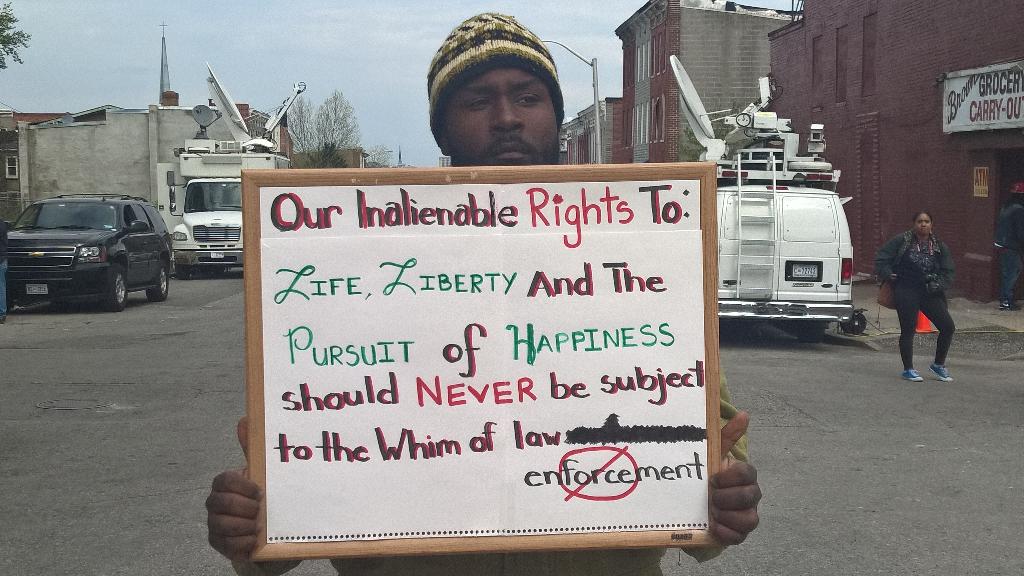 Our Inalienable Rights To:
Life, Liberty And The
Pursuit of Happiness
should NEVER be subject
to the Whim of law
enforcement
GROCERY
CARRY-OUT
ATM